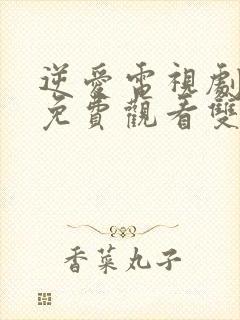 逆愛電視劇
免費觀看雙
香菜丸子